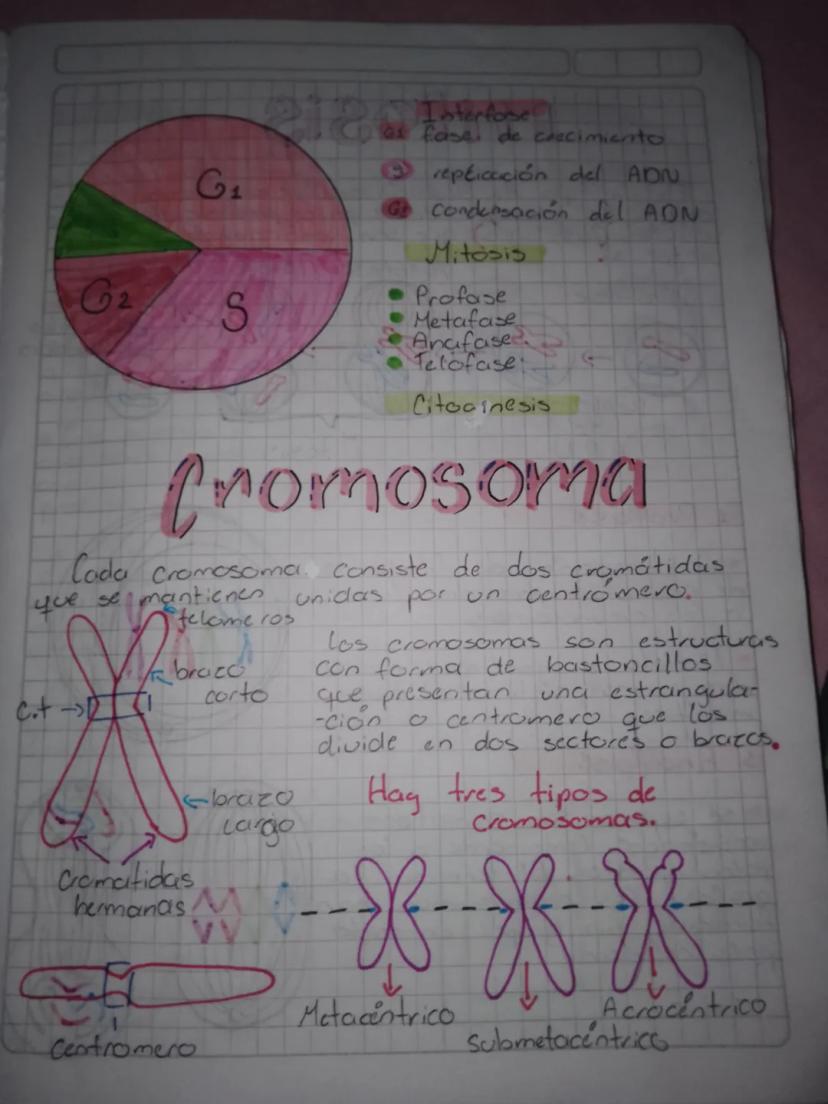 G1
G2
S
Interfase
G1 fase de crecimiento
S replicación del ADN
G2 condensación del ADN
Mitosis
Profase
Metafase
Anafase
Telofase
Citocinesis
Cromosoma
Cada cromosoma consiste de dos cromátidas
que se mantienen unidas por un centrómero.
telomeros
brazo
corto
C.t
brazo
largo
Cromatidas
hermanas
Centromero
los cromosomas son estructuras
con forma de bastoncillos
que presentan una estrangula-
-ción o centromero que los
divide en dos sectores o brazos.
Hay tres tipos de
cromosomas.
Metacéntrico
Submetacéntrico
Acrocéntrico